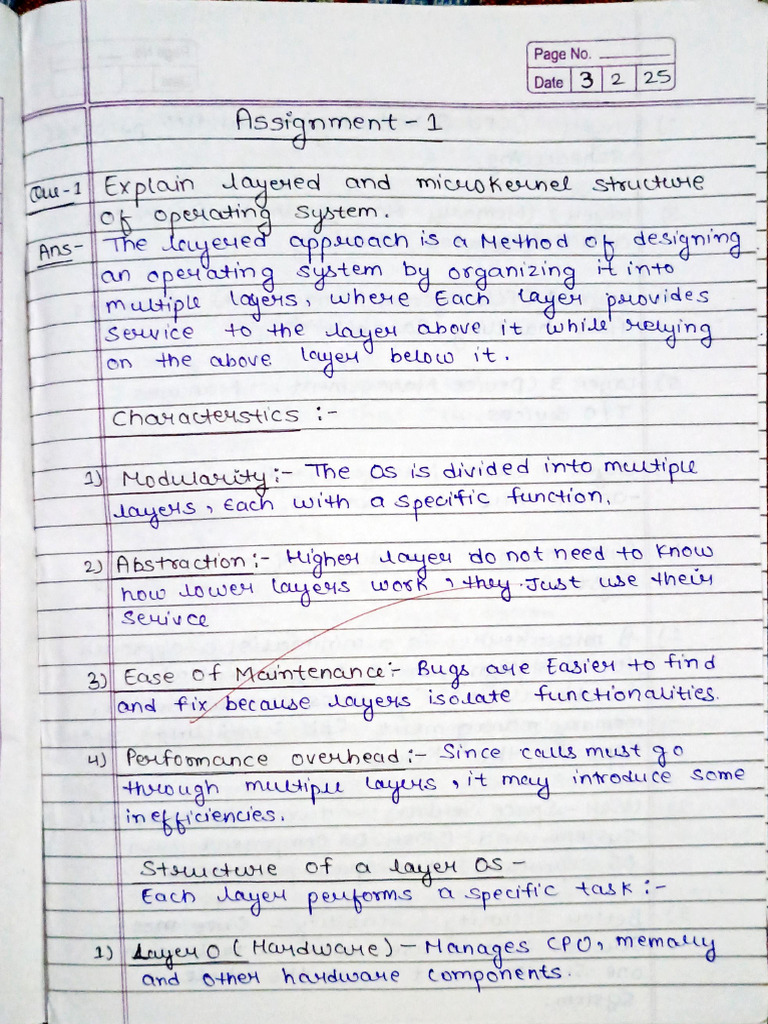 Page No.
Date 3 2 25
Assignment - 1
Que-1 Explain layered and microkernel structure
of operating system.
Ans- The layered approach is a Method of designing
an operating system by organizing it into
multiple layers, where Each layer provides
service to the layer above it while relying
on the above layer below it.
Characterstics :-
1) Modularity :- The OS is divided into multiple
layers, Each with a specific function.
2) Abstraction :- Higher layer do not need to know
how lower layers work, they Just use their
serivce
3) Ease of Maintenance :- Bugs are Easier to find
and fix because layers isolate functionalities.
4) Performance overhead :- Since calls must go
through multiple layers, it may introduce some
inefficiencies.
Structure of a layer OS -
Each layer performs a specific task :-
1) Layer 0 (Hardware) - Manages CPU, memory
and other hardware components.